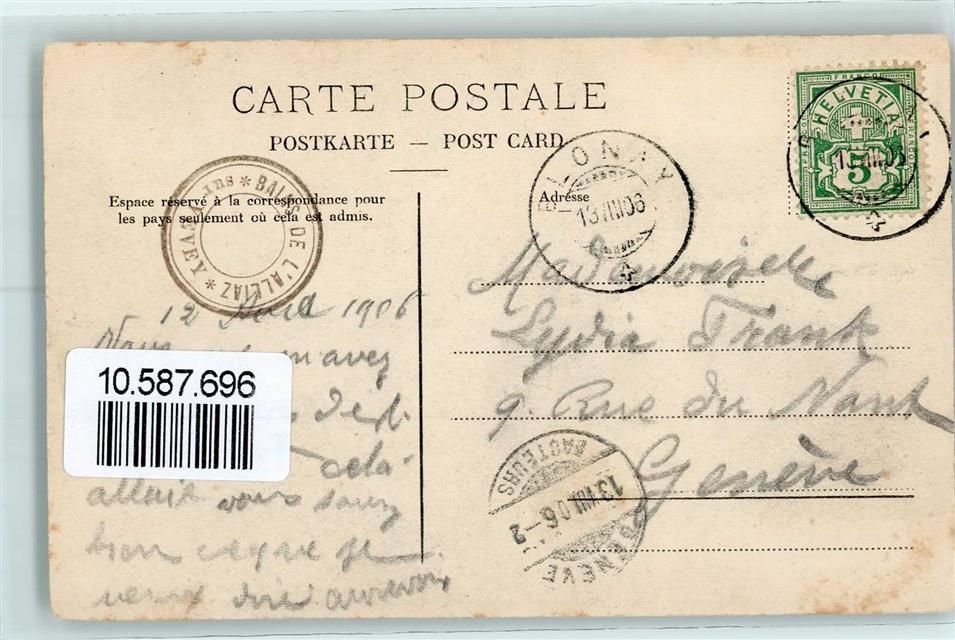 CARTE POSTALE
POSTKARTE — POST CARD
Espace réservé à la correspondance pour
les pays seulement où cela est admis.
Adresse
BAINS DE L'ALLIAZ * sur VEVEY *
BLONAY
13 VIII 06
FRANCO
HELVETIA
5
13 VIII 06
12 1906
avez
10.587.696
cela
allait vous savez
bien ce que je
veux dire au revoir
Mademoiselle
Lydia Frank
9. Rue du Nant
Genève
FACTEURS
13 VIII 06 – 2
GENÈVE